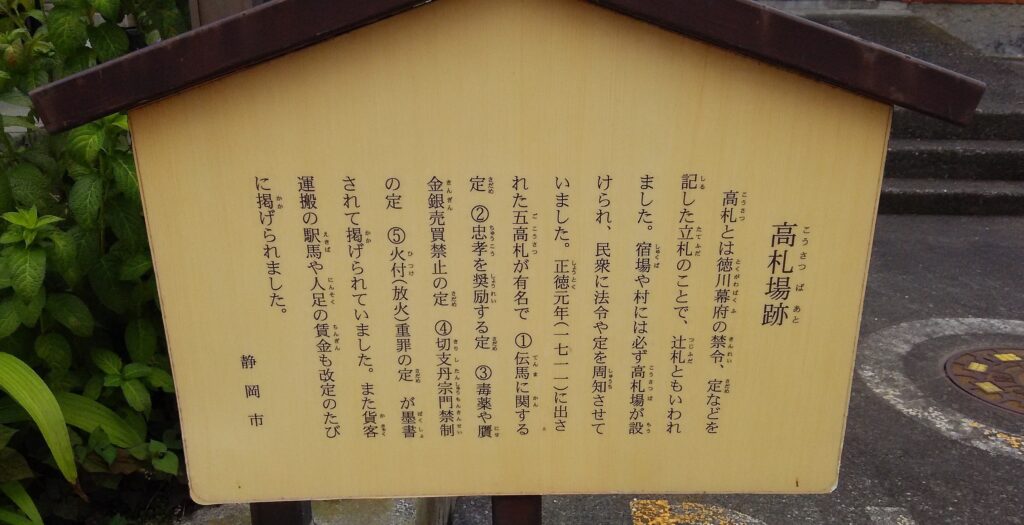 高札場跡
高札とは徳川幕府の禁令、定などを
記した立札のことで、辻札ともいわれ
ました。宿場や村には必ず高札場が設
けられ、民衆に法令や定を周知させて
いました。正徳元年(一七一一)に出さ
れた五高札が有名で ①伝馬に関する
定 ②忠孝を奨励する定 ③毒薬や贋
金銀売買禁止の定 ④切支丹宗門禁制
の定 ⑤火付(放火)重罪の定 が墨書
されて掲げられていました。また貨客
運搬の駅馬や人足の賃金も改定のたび
に掲げられました。
静岡市